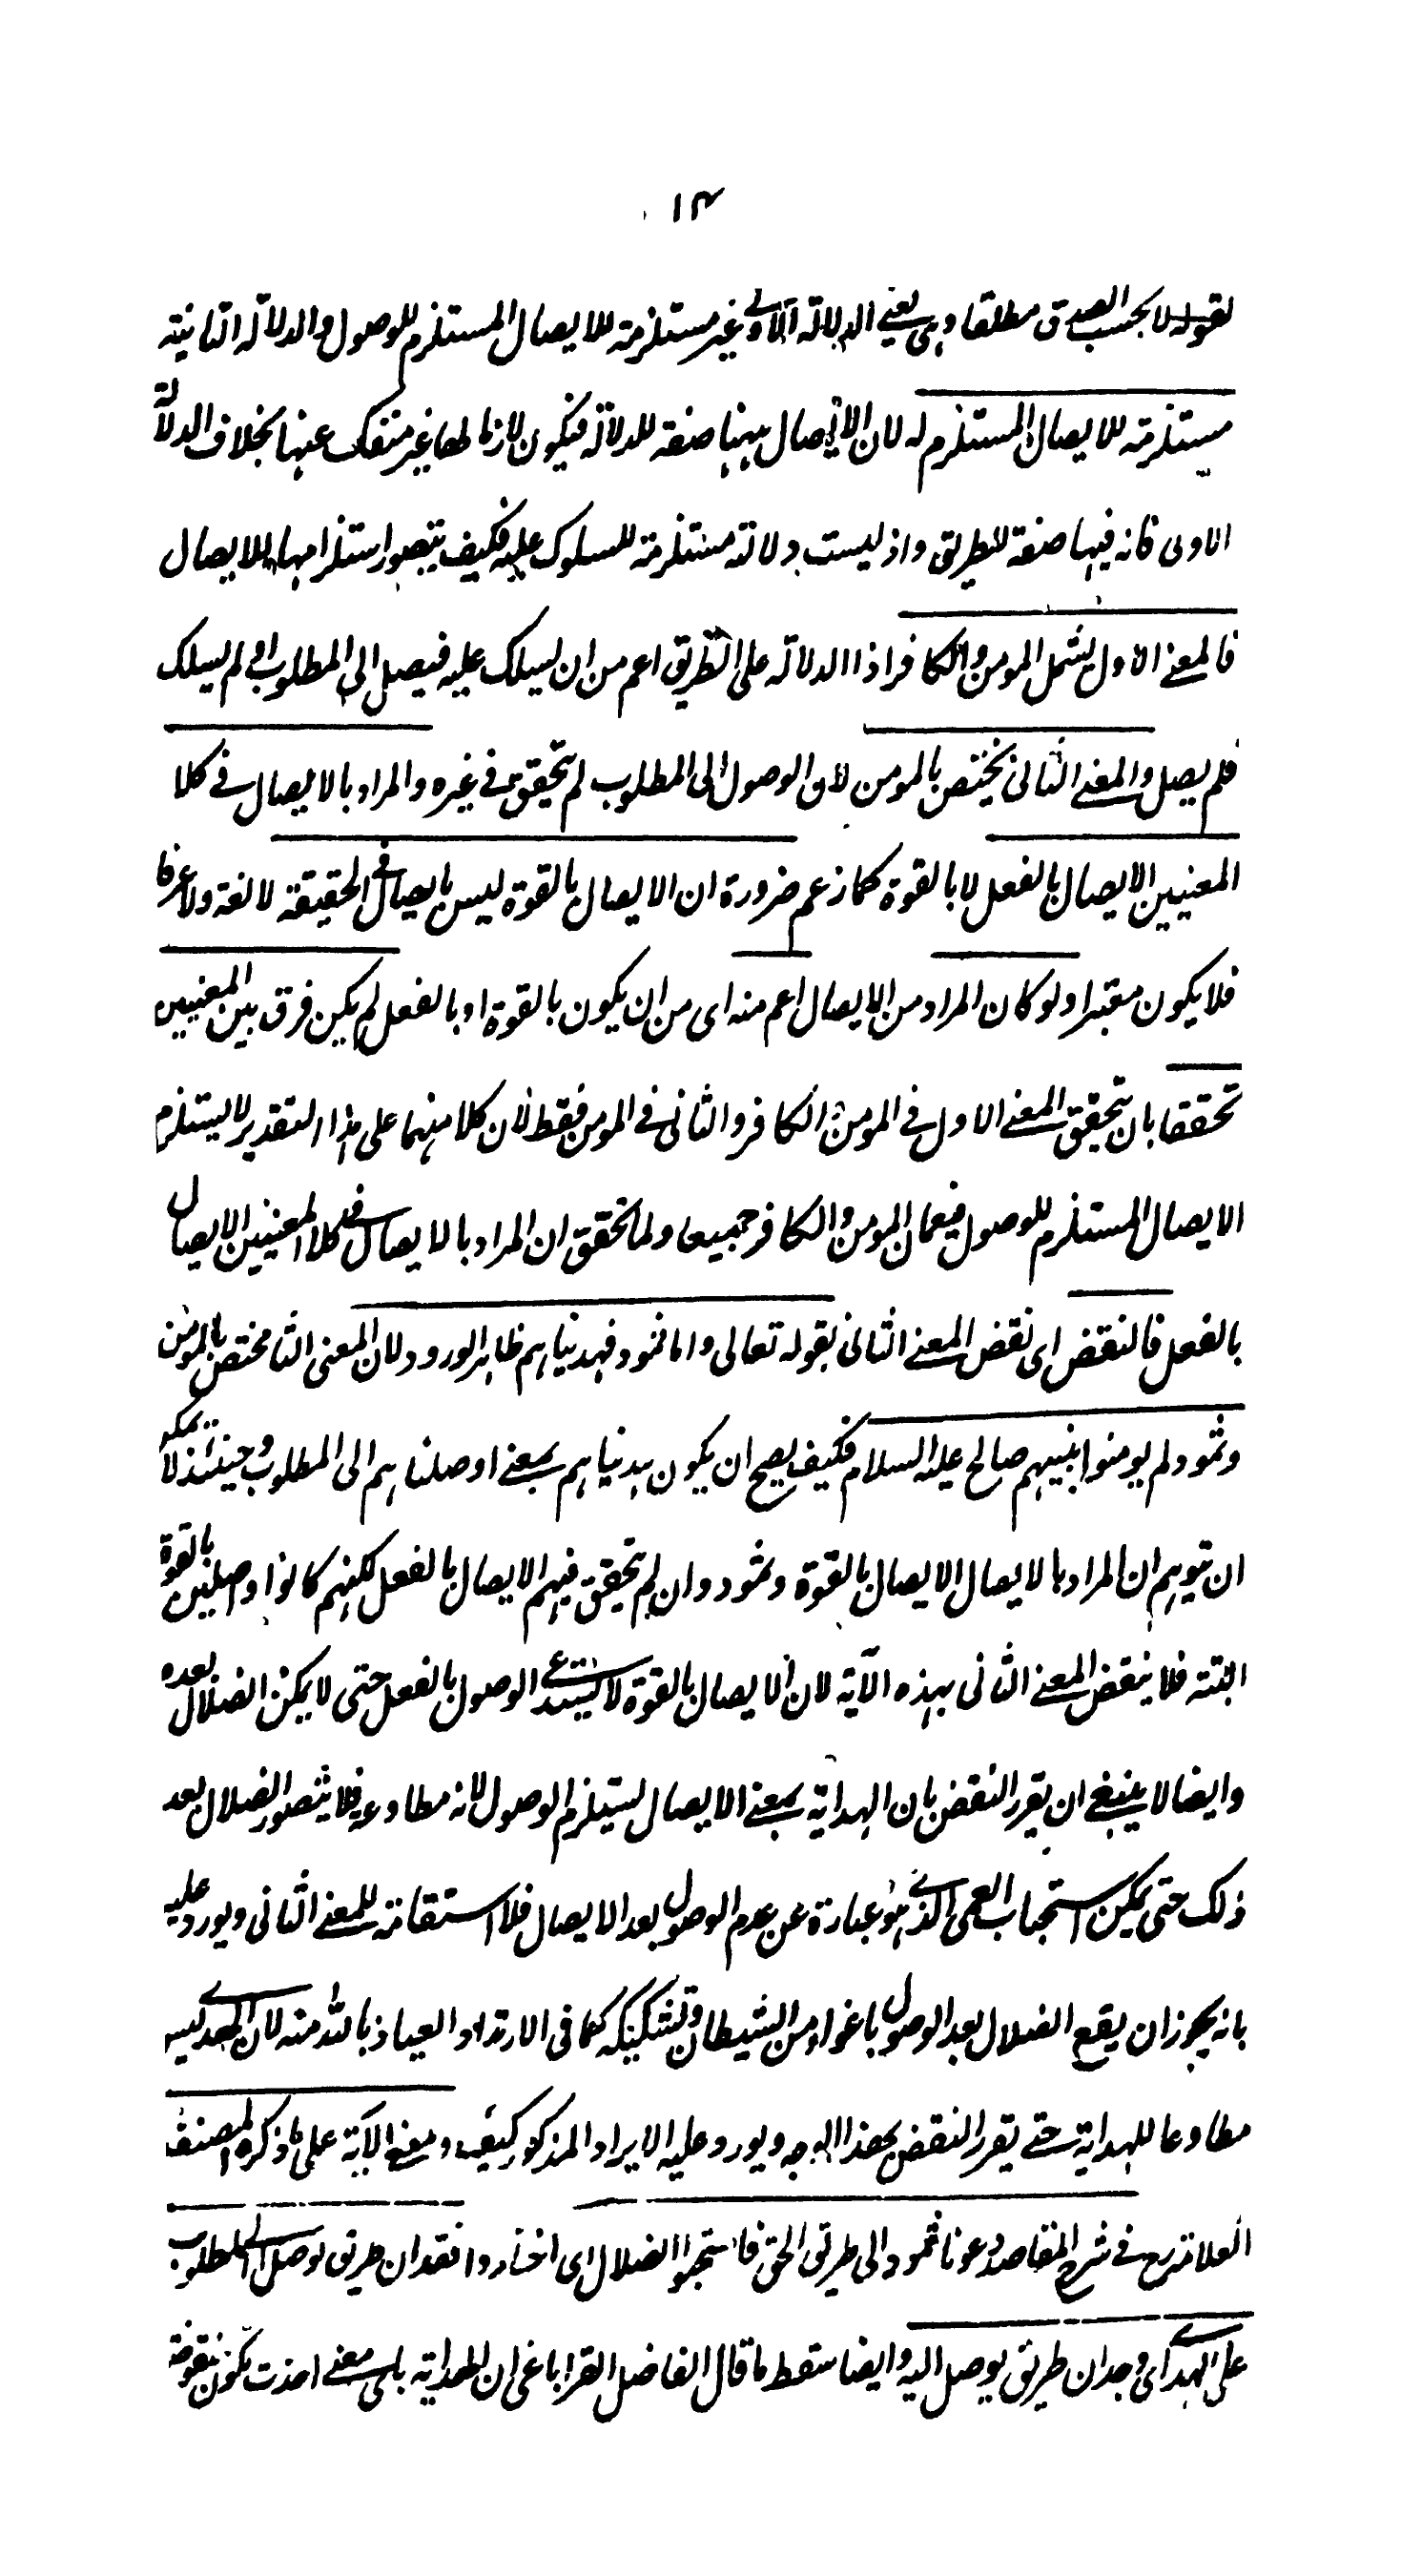 ١٤
لقوله لا بحسب الصدق مطلقا وهى يعنے الدلالة الاولے غير مستلزمة للايصال المستلزم للوصول والدلالة الثانية
مستلزمة للايصال المستلزم له لان الايصال ههنا صفة للدلالة فيكون لازما لها غير منفك عنها بخلاف الدلالة
الاولى فانه فيها صفة للطريق واذ ليست دلالته مستلزمة للسلوك عليه فكيف يتصور استلزامها للايصال
فالمعنے الاول يشمل المومن والكافر اذ الدلالة على الطريق اعم من ان يسلك عليه فيصل الى المطلوب او لم يسلك
فلم يصل والمعنے الثانى يختص بالمومن لان الوصول الى المطلوب لم يتحقق فے غيره والمراد بالايصال فے كلا
المعنيين الايصال بالفعل لا بالقوة كما زعم ضرورة ان الايصال بالقوة ليس بايصال فى الحقيقة لا لغة ولا عرفا
فلا يكون معتبرا ولو كان المراد من الايصال اعم منه اى من ان يكون بالقوة او بالفعل لم يكن فرق بين المعنيين
تحققا بان يتحقق المعنے الاول فے المومن والكافر والثانى فے المومن فقط لان كلا منهما على هذا التقدير لا يستلزم
الايصال المستلزم للوصول فيعمان المومن والكافر جميعا ولما تحقق ان المراد بالايصال فے كلا المعنيين الايصال
بالفعل فالنقض اى نقض المعنے الثانى بقوله تعالى واما ثمود فهديناهم ظاهر الورود لان المعنى الثا مختص بالمومن
وثمود لم يومنوا بنبيهم صالح عليه السلام فكيف يصح ان يكون هديناهم بمعنے اوصلناهم الى المطلوب وحينئذ لا يمكن
ان يتوهم ان المراد بالايصال الايصال بالقوة وثمود وان لم يتحقق فيهم الايصال بالفعل لكنهم كانوا واصلين بالقوة
البتة فلا ينقض المعنے الثانى بهذه الآية لان الايصال بالقوة لا يستدعے الوصول بالفعل حتى لا يمكن الضلال بعده
وايضا لا ينبغے ان يقرر النقض بان الهداية بمعنے الايصال يستلزم الوصول لانه مطاوعه فلا يتصور الضلال بعد
ذلك حتى يمكن استحباب العمى الذے هو عبارة عن عدم الوصول بعد الايصال فلا استقامة للمعنے الثانى ويورد عليه
بانه يجوز ان يقع الضلال بعد الوصول باغواء من الشيطان وتشكيكه كما فى الارتداد العياذ بالله منه لان الهدے ليس
مطاوعا للهداية حتے يقرر النقض بهذا الوجه ويورد عليه الايراد المذكور كيف ومعنے الآية على ما ذكره المصنف
العلامة رح فے شرح المقاصد دعونا ثمود الى طريق الحق فاستحبوا الضلال اى اختاروا فقدان طريق يوصل الے المطلوب
على الهدے اى وجدان طريق يوصل اليه وايضا سقط ما قال الفاضل القراباغى ان الهداية باى معنے اخذت تكون منقوضة